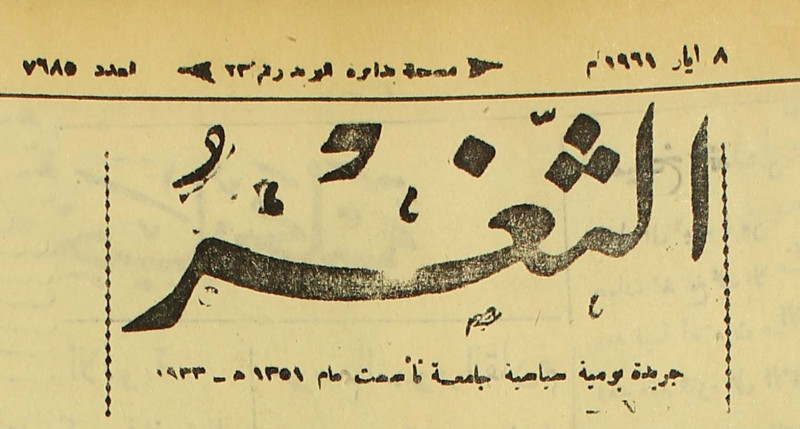 ٨ ايار ١٩٦١ م صندوق البريد رقم ٢٣ العدد ٧٦٨٥
الثّغْرُ
جريدة يومية سياسية جامعة تأسست عام ١٣٥١ ه – ١٩٣٣